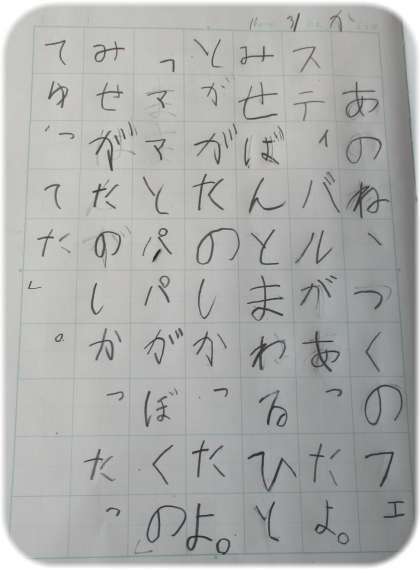 あのね、つくのフェ
スティバルがあったよ。
みせばんとまわるひと
とががたのしかったよ。
「ママとパパがぼくの
みせがたのしかったっ
てゆってた」。